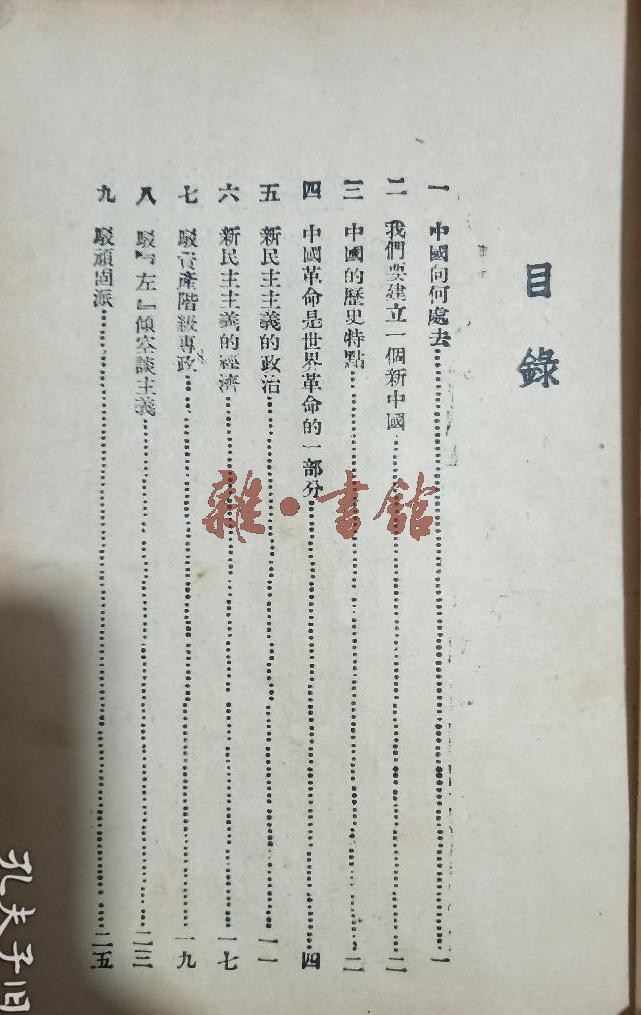 目錄
一 中國向何處去……一
二 我們要建立一個新中國……二
三 中國的歷史特點……二
四 中國革命是世界革命的一部分……四
五 新民主主義的政治……一一
六 新民主主義的經濟……一七
七 駁資產階級專政……一九
八 駁『左』傾空談主義……二三
九 駁頑固派……二五
雜·書館
孔夫子旧